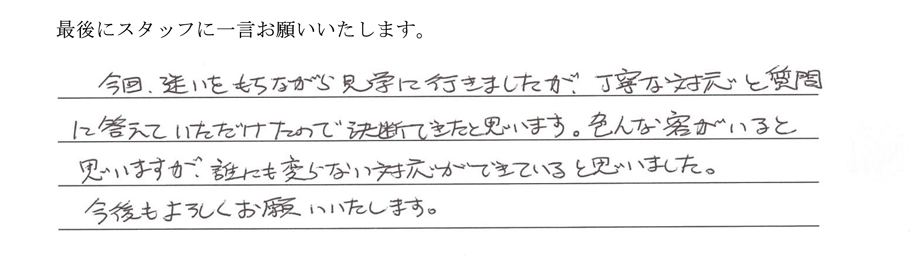 最後にスタッフに一言お願いいたします。
今回、迷いをもちながら見学に行きましたが、丁寧な対応と質問
に答えていただけたので決断できたと思います。色んな客がいると
思いますが、誰にも変らない対応ができていると思いました。
今後もよろしくお願いいたします。